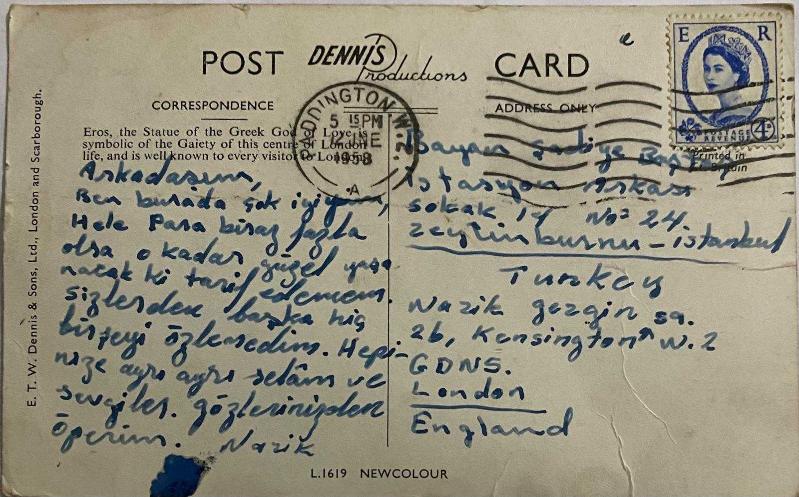 POST DENNIS Productions CARD
CORRESPONDENCE
ADDRESS ONLY
Eros, the Statue of the Greek God of Love is
symbolic of the Gaiety of this centre of London
life, and is well known to every visitor to London.
Arkadaşım,
Ben burada çok iyiyim,
Hele Para biraz fazla
olsa o kadar güzel yaşa
nacak ki tarif edemem.
sizlerden başka hiç
birşeyi özlemedim. Hepi-
nize ayrı ayrı selâm ve
sevgiler. gözlerinizden
öperim. Nazik
PADDINGTON W.2.
5 15 PM
1958
A
E R
4D
POSTAGE
REVENUE
Printed in
Gt. Britain
Bayan Sadiye
istasyon Arkası
sokak 14 No= 24.
Zeytinburnu - istanbul
Turkey
Nazik gezgin sa.
26, Kensington W.2
GDNS.
London
England
E. T. W. Dennis & Sons, Ltd., London and Scarborough.
L.1619 NEWCOLOUR